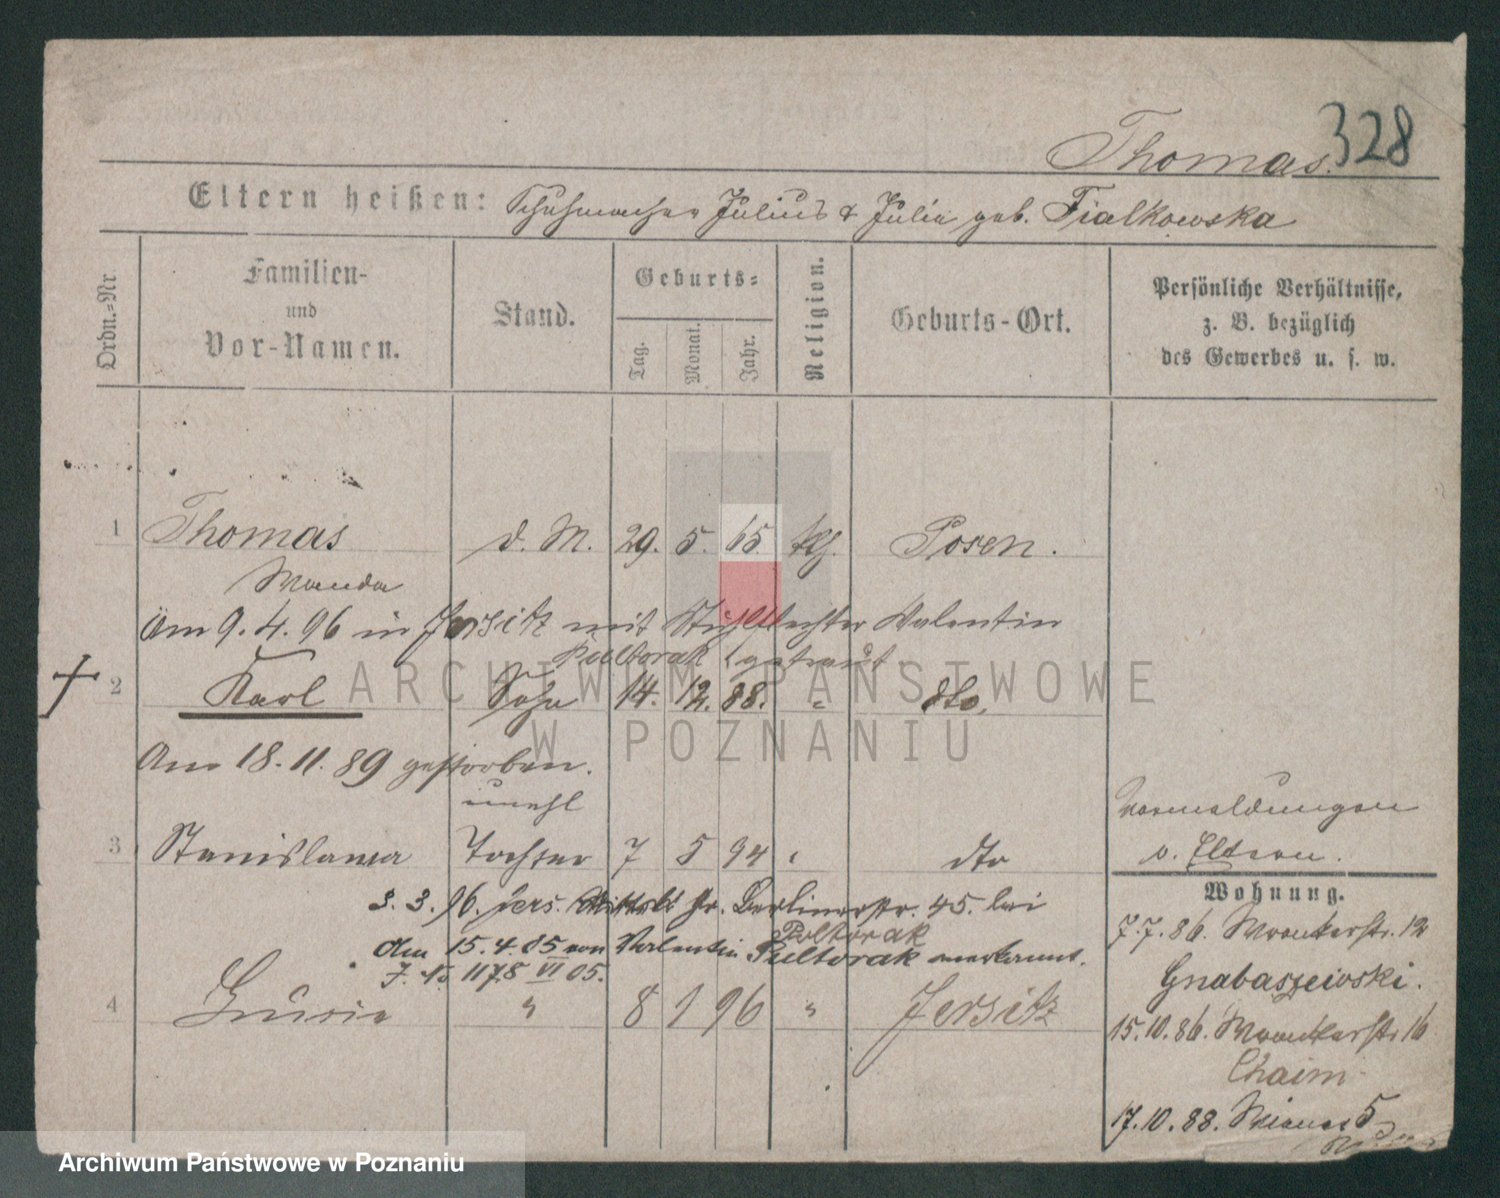 328
Thomas.
Eltern heißen: Schuhmacher Julius & Julie geb. Fialkowska
Ordn.=Nr
Familien-
und
Vor-Namen.
Stand.
Geburts=
Tag.
Monat.
Jahr.
Religion.
Geburts-Ort.
Persönliche Verhältnisse,
z. B. bezüglich
des Gewerbes u. s. w.
1 Thomas d. M. 29. 5. 65. kth. Posen.
Wanda
Am 9. 4. 96 in Jersitz mit Stuhlflechter Valentin
Pultorak getraut.
2 Karl Sohn 14. 12. 88. " dto.
Am 18. 11. 89 gestorben.
unehl
3 Stanislawa Tochter 7 5 94 " dto
3. 3. 96. Jers. Berlinerstr. 45. bei
Poltorak
Am 15. 4. 05 von Valentin Pultorak anerkannt.
J. No 1178 VI 05.
4 " 8 1 96 " Jersitz
Vormeldungen
v. Eltern.
Wohnung.
7. 7. 86. Wronkerstr. 12
Gnabaszewski.
15. 10. 86. Wronkerstr 16
Chaim
17. 10. 88. 5
ARCHIWUM PAŃSTWOWE
W POZNANIU
Archiwum Państwowe w Poznaniu